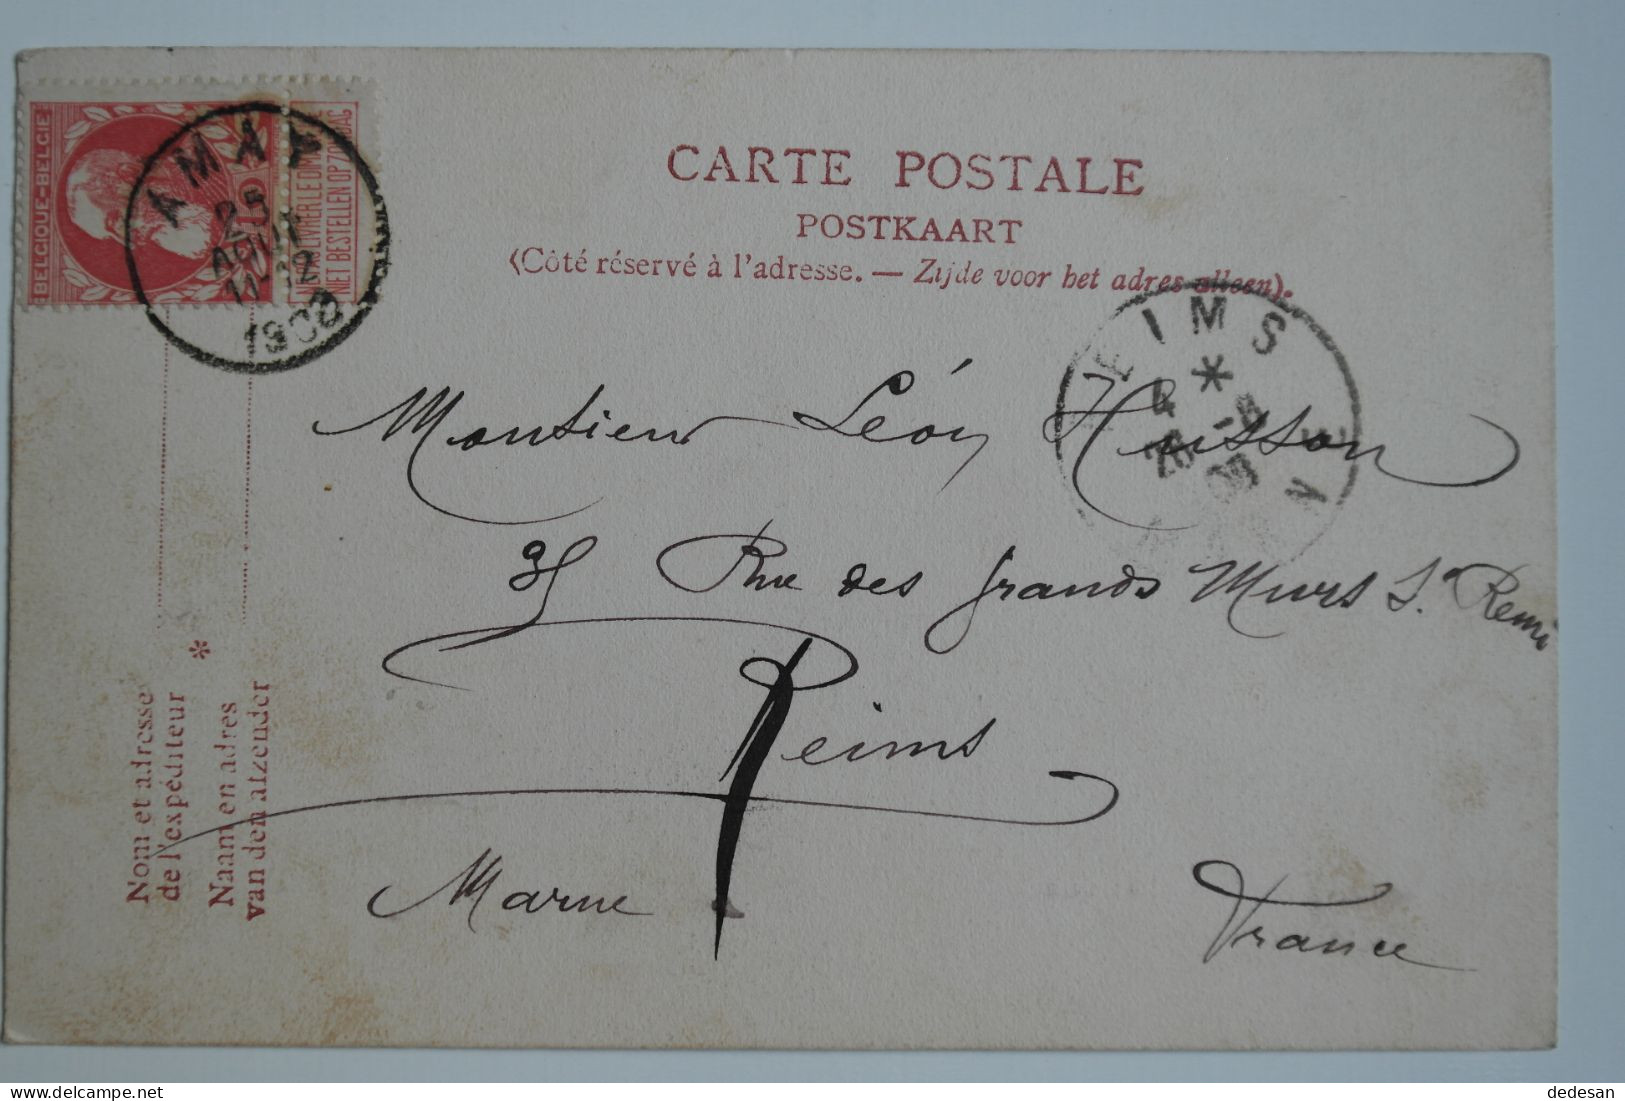 CARTE POSTALE
POSTKAART
(Côté réservé à l'adresse. — Zijde voor het adres alleen).
BELGIQUE-BELGIE
NE PAS LIVRER LE DIMANCHE
NIET BESTELLEN OP ZONDAG
AMAY
25
AOUT
11-12
1908
REIMS
*
4
26 -8
08
Monsieur Léon Husson
35 Rue des grands Murs St Remi
Reims
Marne
France
Nom et adresse
de l'expéditeur
*
Naam en adres
van den afzender
dedesan